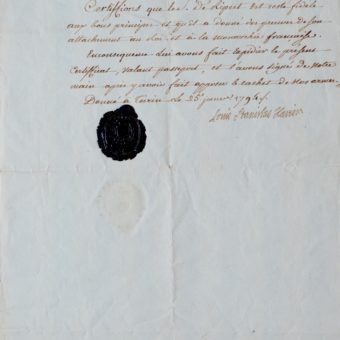 Certifions que le s. de Ligist est resté fidele
aux bons principes et qu'il a donné des preuves de son
attachement au Roi et à la monarchie françoise.
En conséquence lui avons fait expédier le présent
Certificat, valant passeport, et l'avons signé de notre
main après y avoir fait apposer le cachet de nos armes
Donné à Turin le 25 janv.r 1794.
Louis Stanislas Xavier